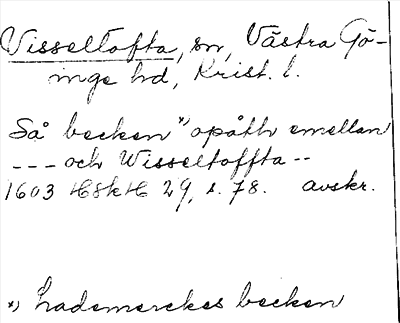 Visseltofta, sn, Västra Gö-
inge hd, Krist. l.
Så becken *) opåth emellan
--- och Wisseltoffta --
1603 HSkH 29, s. 78. avskr.
*) Lademerckes becken